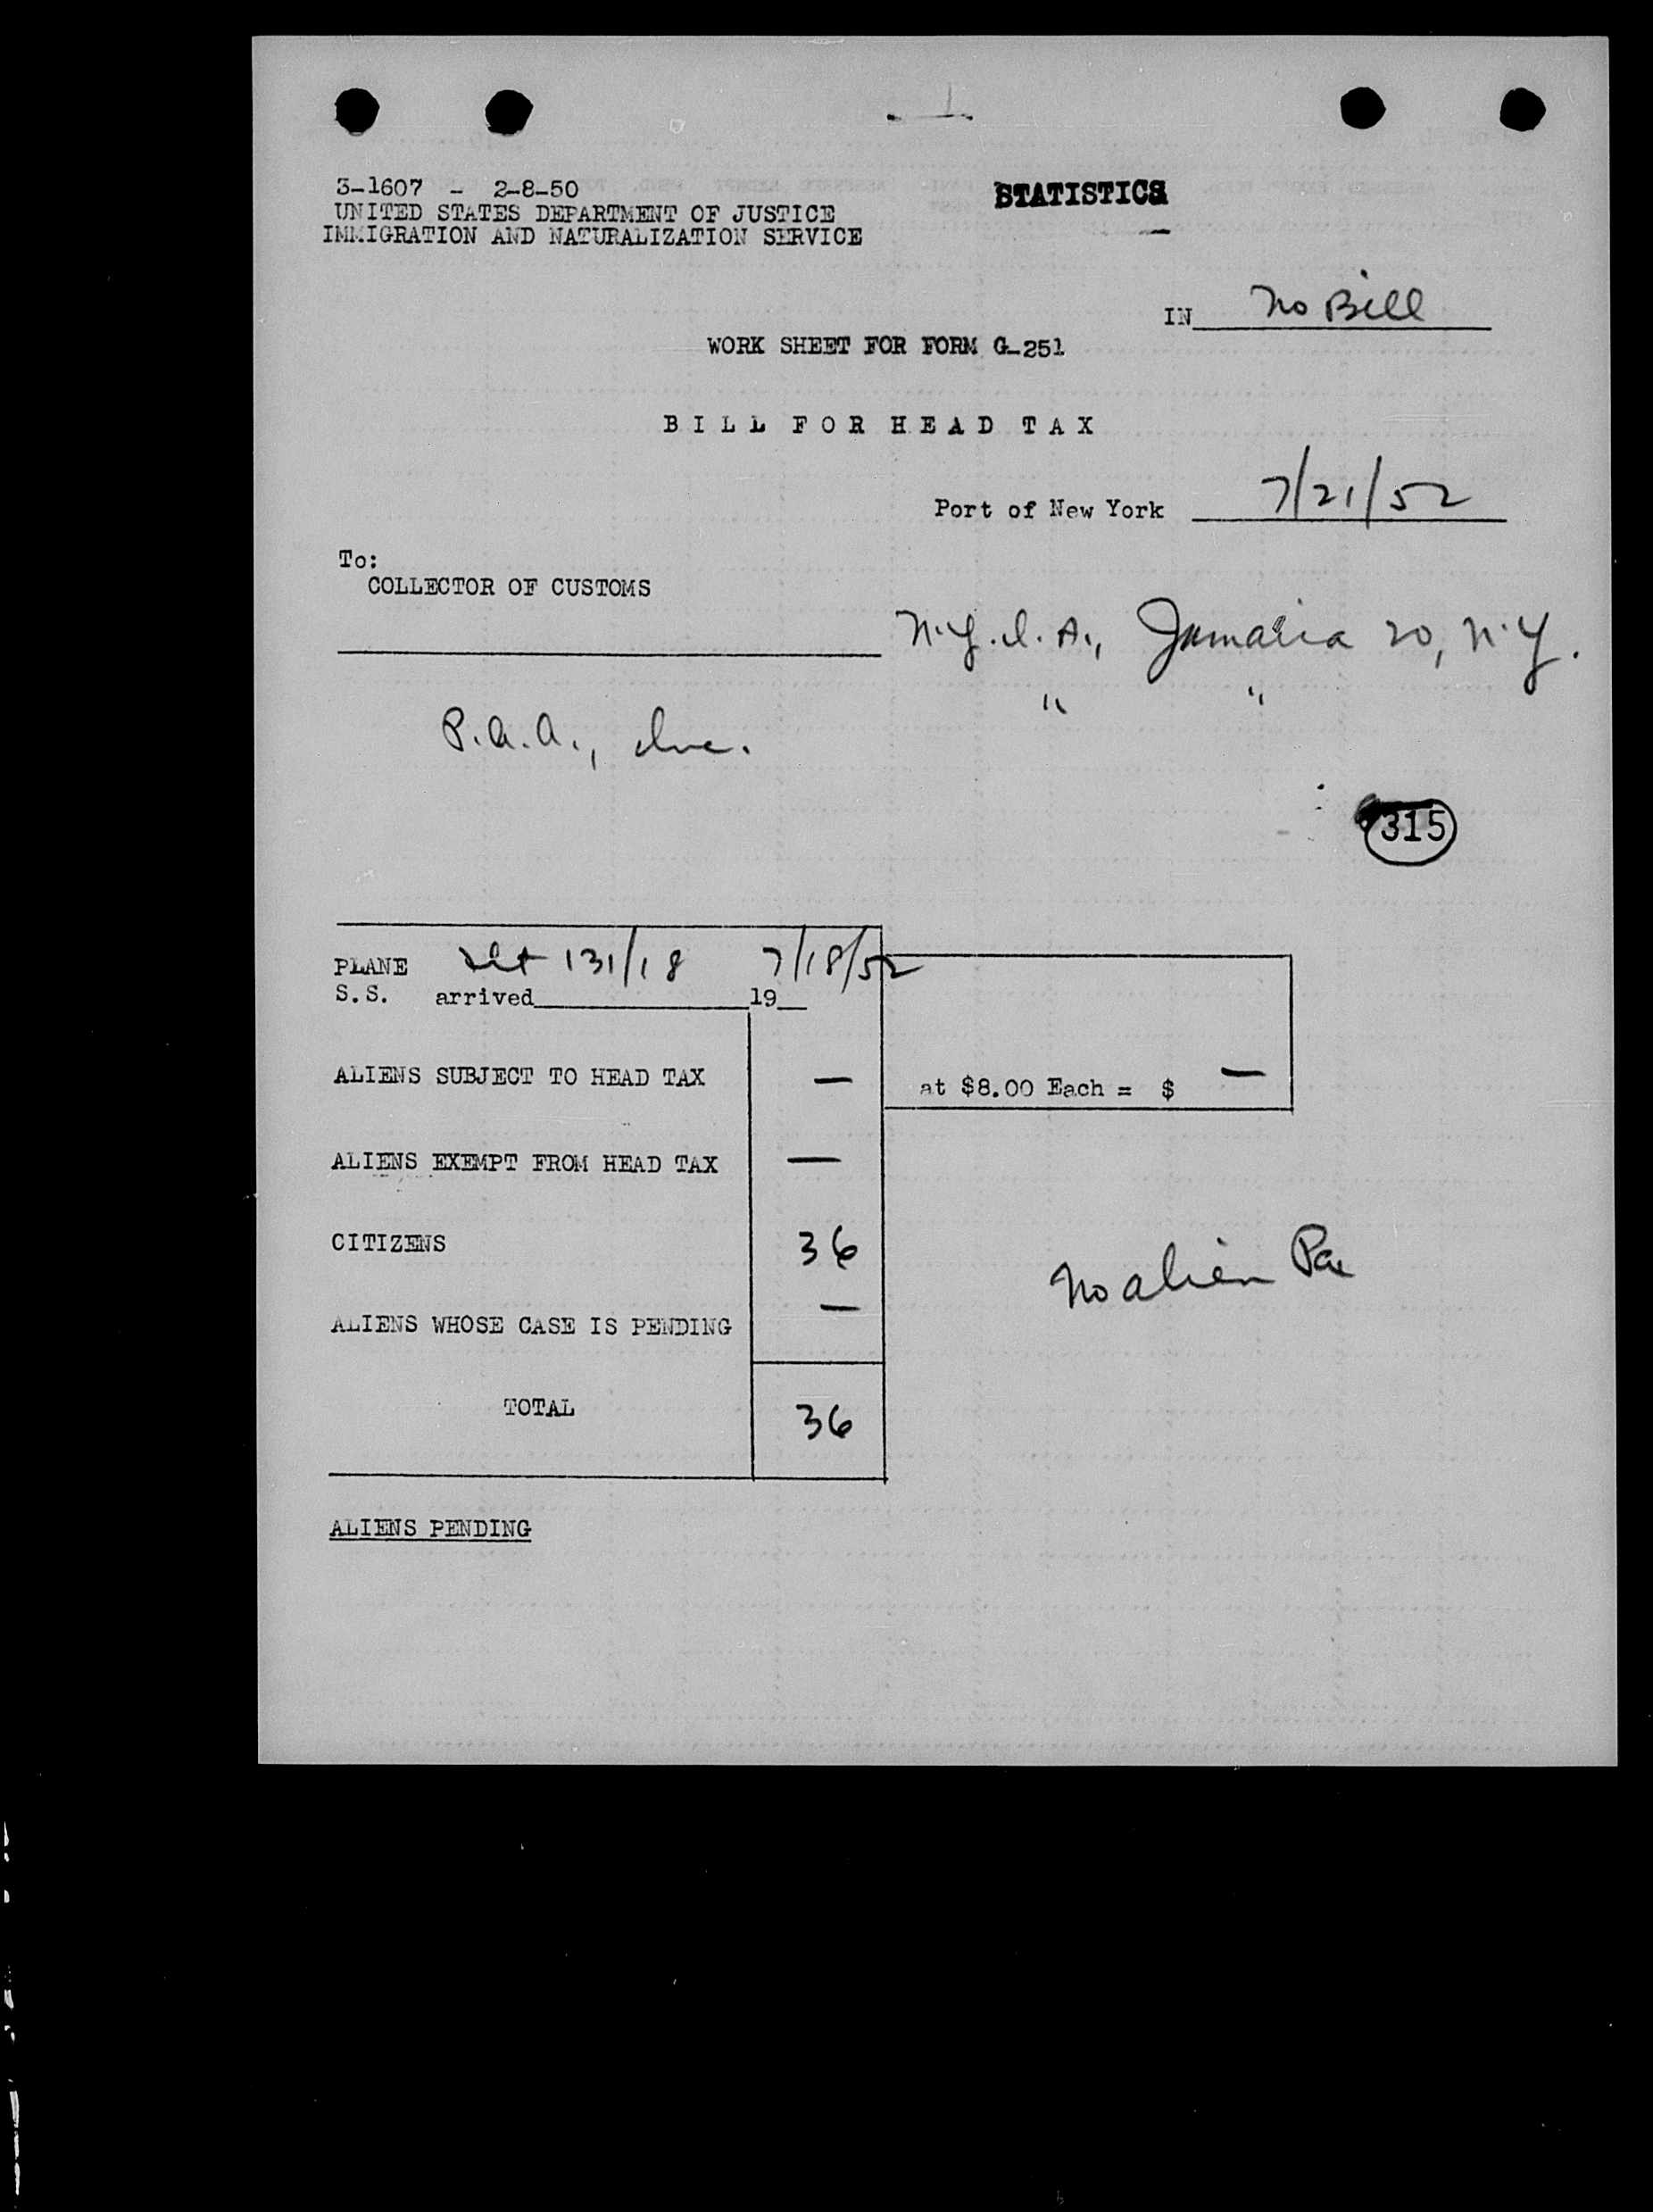 3-1607 - 2-8-50
UNITED STATES DEPARTMENT OF JUSTICE
IMMIGRATION AND NATURALIZATION SERVICE
STATISTICS
IN No Bill
WORK SHEET FOR FORM G-251
BILL FOR HEAD TAX
Port of New York 7/21/52
To:
COLLECTOR OF CUSTOMS
N.Y.I.A., Jamaica 20, N.Y.
" "
P.A.A., Inc.
315
PLANE 131/18 7/18/52
S.S. arrived 19
ALIENS SUBJECT TO HEAD TAX —
at $8.00 Each = $ —
ALIENS EXEMPT FROM HEAD TAX —
CITIZENS 36
No alien Pax
ALIENS WHOSE CASE IS PENDING —
TOTAL 36
ALIENS PENDING